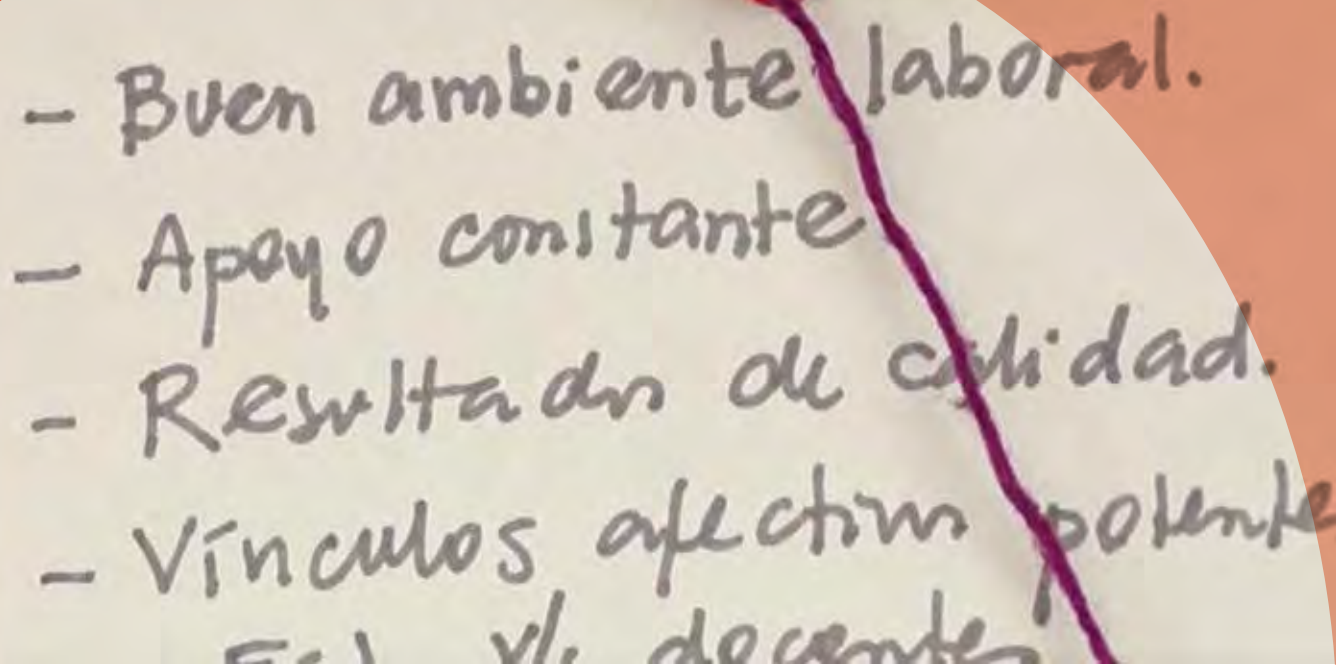 - Buen ambiente laboral.
- Apoyo constante
- Resultados de calidad.
- Vínculos afectivos potente
docentes